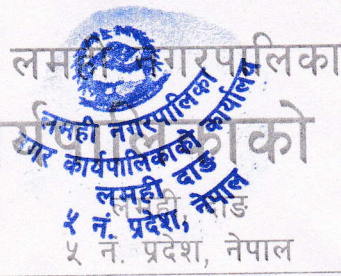 लमही नगरपालिका
र्यपालिकाको
लमही, दाङ
५ नं. प्रदेश, नेपाल
लमही नगरपालिका
नगर कार्यपालिकाको कार्यालय
लमही दाङ
५ नं. प्रदेश, नेपाल